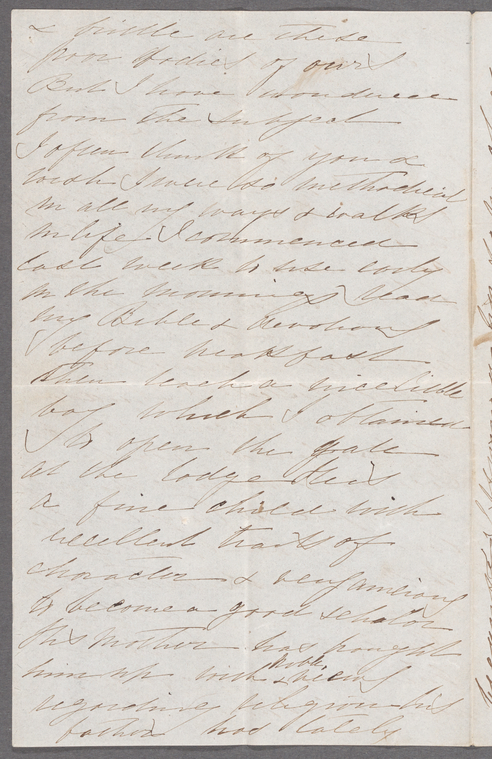 & brittle are these
poor bodies of ours
But I have wandered
from the subject
I often think of you &
wish I were so methodical
in all my ways & walks
in life I commenced
last week to rise early
in the mornings read
my Bible & devotions
before breakfast
then teach a nice little
boy which I obtained
to open the gate
at the lodge He is
a fine child with
excellent traits of
character & very anxious
to become a good scholar
His mother has brought
him up with & views
regarding religion his
father has lately